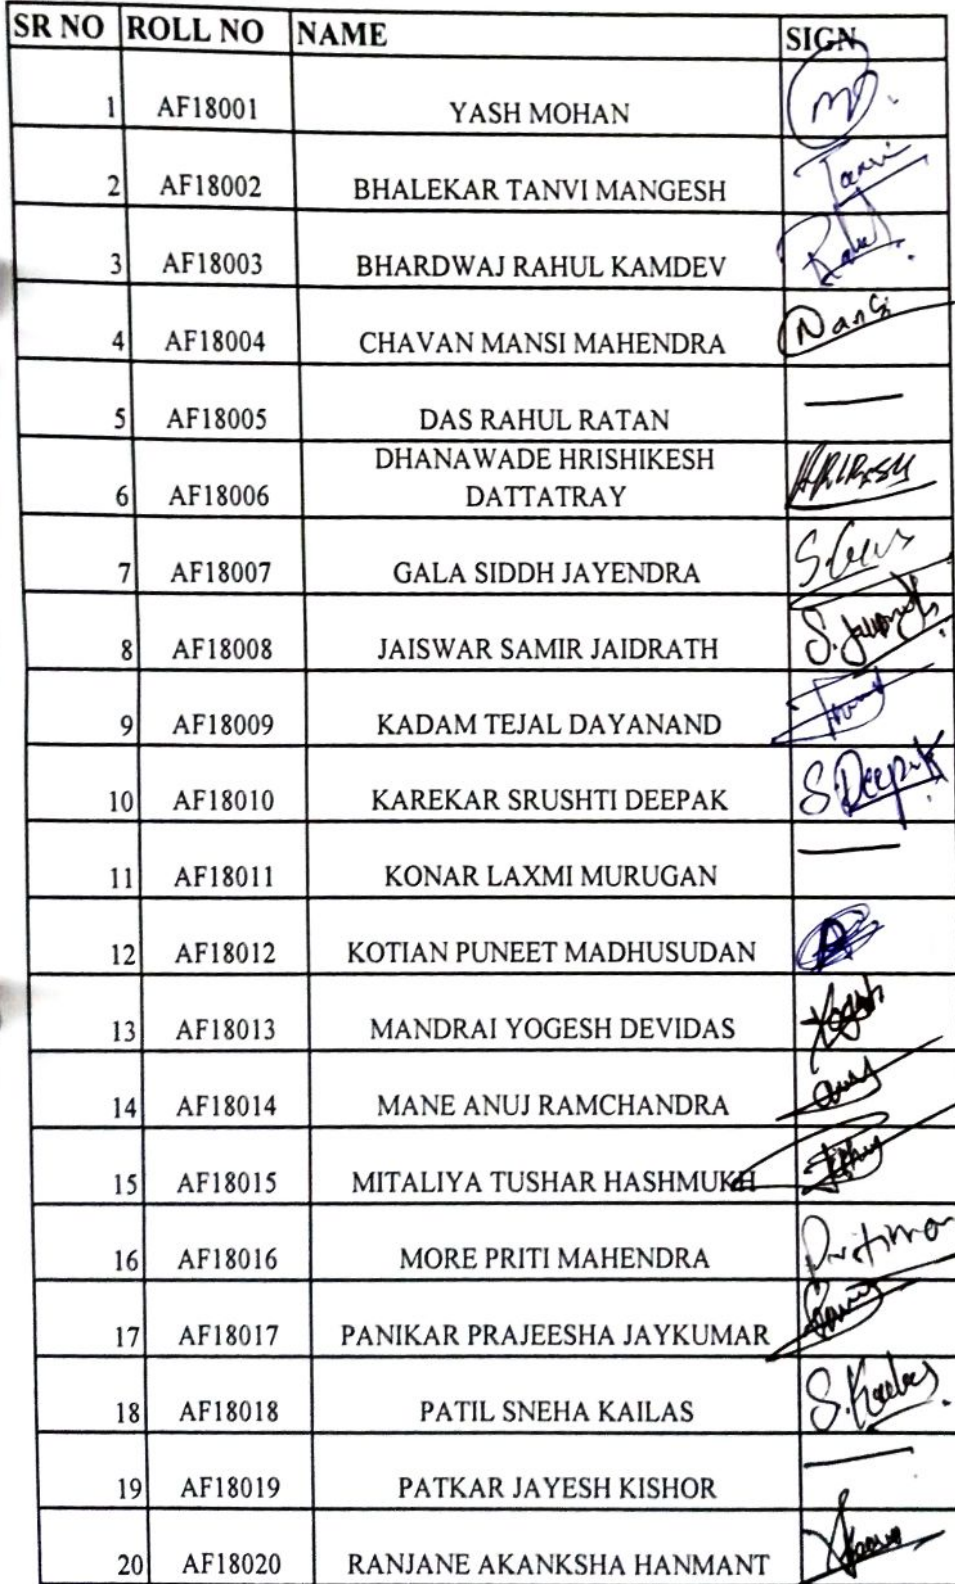 SR NO ROLL NO NAME SIGN
1 AF18001 YASH MOHAN
2 AF18002 BHALEKAR TANVI MANGESH Tanvi
3 AF18003 BHARDWAJ RAHUL KAMDEV Rahul
4 AF18004 CHAVAN MANSI MAHENDRA
5 AF18005 DAS RAHUL RATAN —
DHANAWADE HRISHIKESH
6 AF18006 DATTATRAY
7 AF18007 GALA SIDDH JAYENDRA
8 AF18008 JAISWAR SAMIR JAIDRATH
9 AF18009 KADAM TEJAL DAYANAND
10 AF18010 KAREKAR SRUSHTI DEEPAK S.Deepak
11 AF18011 KONAR LAXMI MURUGAN —
12 AF18012 KOTIAN PUNEET MADHUSUDAN
13 AF18013 MANDRAI YOGESH DEVIDAS
14 AF18014 MANE ANUJ RAMCHANDRA
15 AF18015 MITALIYA TUSHAR HASHMUKH
16 AF18016 MORE PRITI MAHENDRA
17 AF18017 PANIKAR PRAJEESHA JAYKUMAR
18 AF18018 PATIL SNEHA KAILAS
19 AF18019 PATKAR JAYESH KISHOR —
20 AF18020 RANJANE AKANKSHA HANMANT